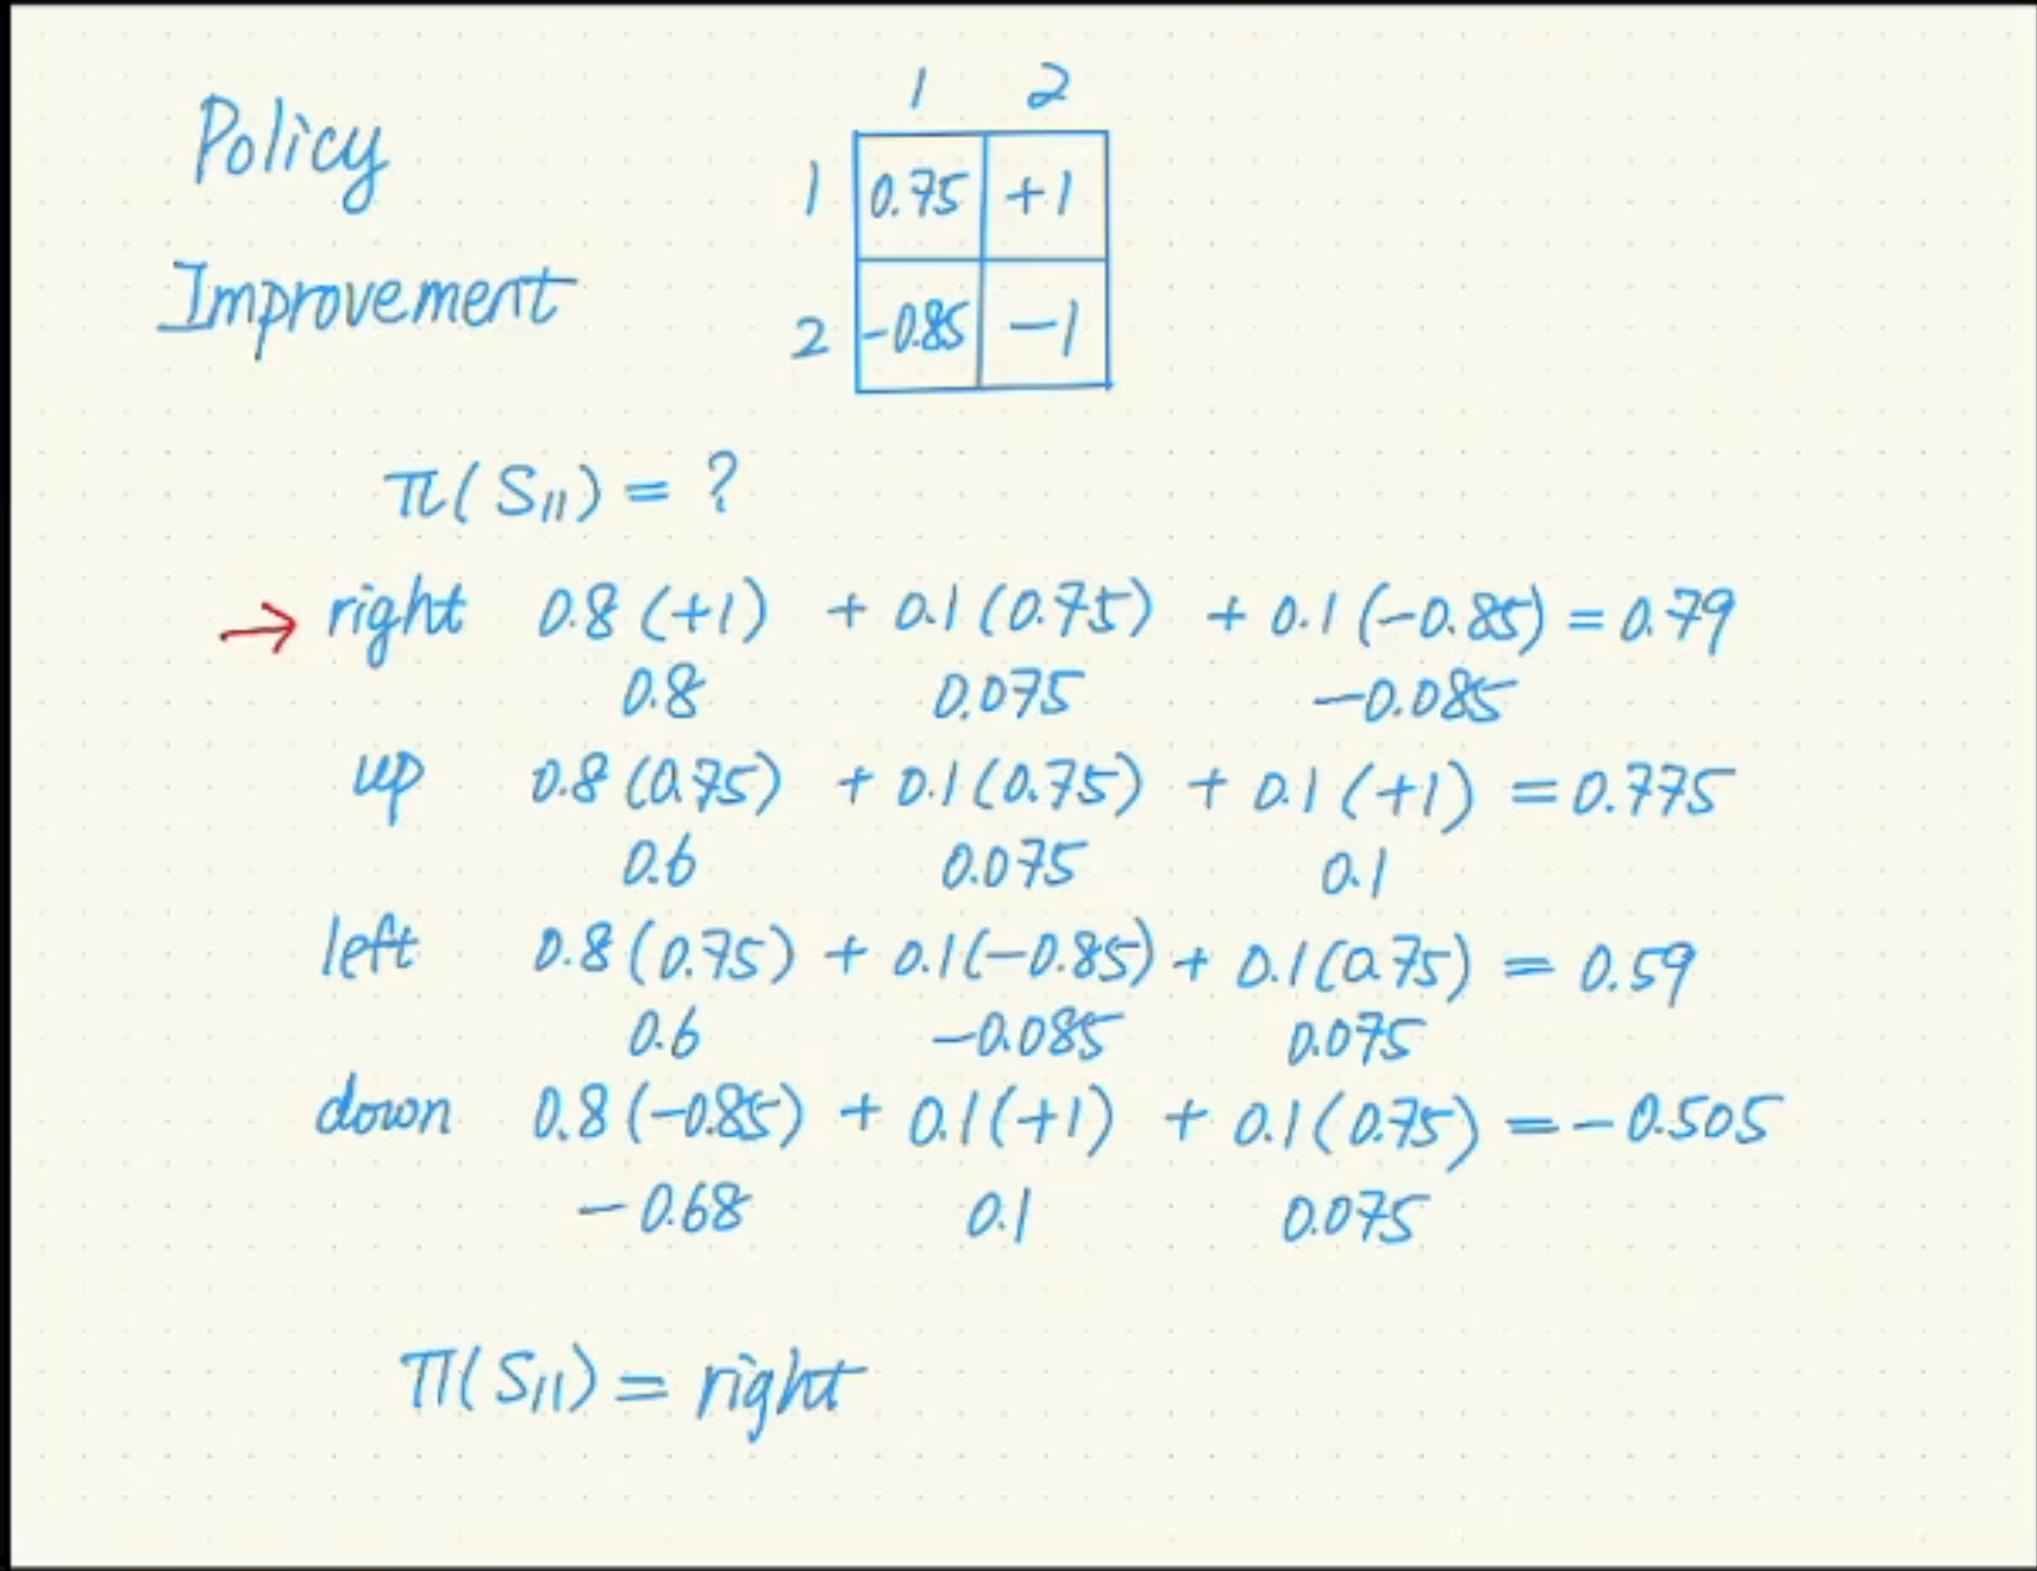 Policy
Improvement
1 2
1 0.75 +1
2 -0.85 -1
π(S₁₁) = ?
→ right 0.8 (+1) + 0.1 (0.75) + 0.1 (-0.85) = 0.79
0.8 0.075 -0.085
up 0.8 (0.75) + 0.1 (0.75) + 0.1 (+1) = 0.775
0.6 0.075 0.1
left 0.8 (0.75) + 0.1 (-0.85) + 0.1 (0.75) = 0.59
0.6 -0.085 0.075
down 0.8 (-0.85) + 0.1 (+1) + 0.1 (0.75) = -0.505
-0.68 0.1 0.075
π(S₁₁) = right